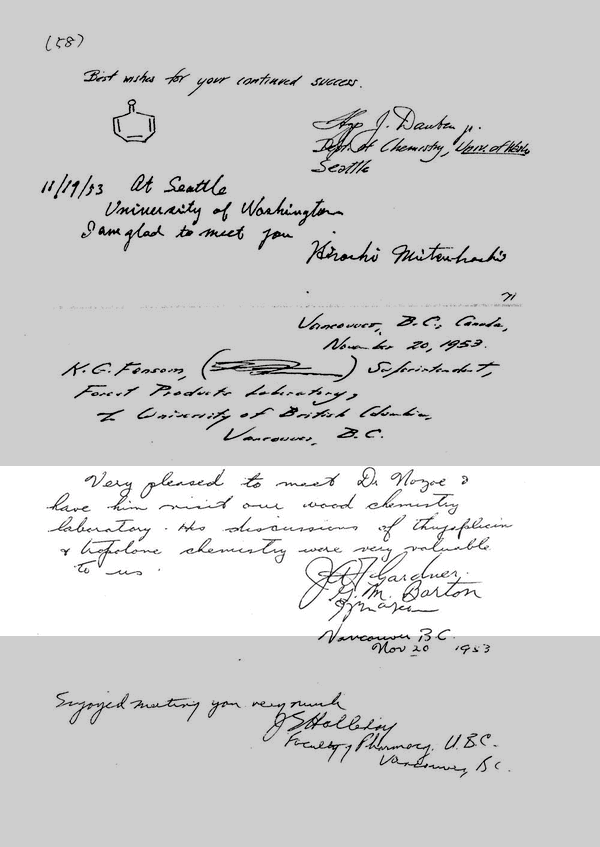 (58)
Best wishes for your continued success.
J. Dauben jr.
Dept. of Chemistry, Univ. of Wash.
Seattle
11/19/53 At Seattle
University of Washington
I am glad to meet you
Hiroshi Mitsuhashi
Vancouver, B.C., Canada,
November 20, 1953.
K. G. Fensom, Superintendent,
Forest Products Laboratory,
University of British Columbia,
Vancouver, B.C.
Very pleased to meet Dr Nozoe &
have him visit our wood chemistry
laboratory. His discussions of thujaplicin
& tropolone chemistry were very valuable
to us.
J A F Gardner.
G. M. Barton
Vancouver B.C.
Nov 20 1953
Enjoyed meeting you very much
Faculty of Pharmacy, U.B.C.
Vancouver, B.C.